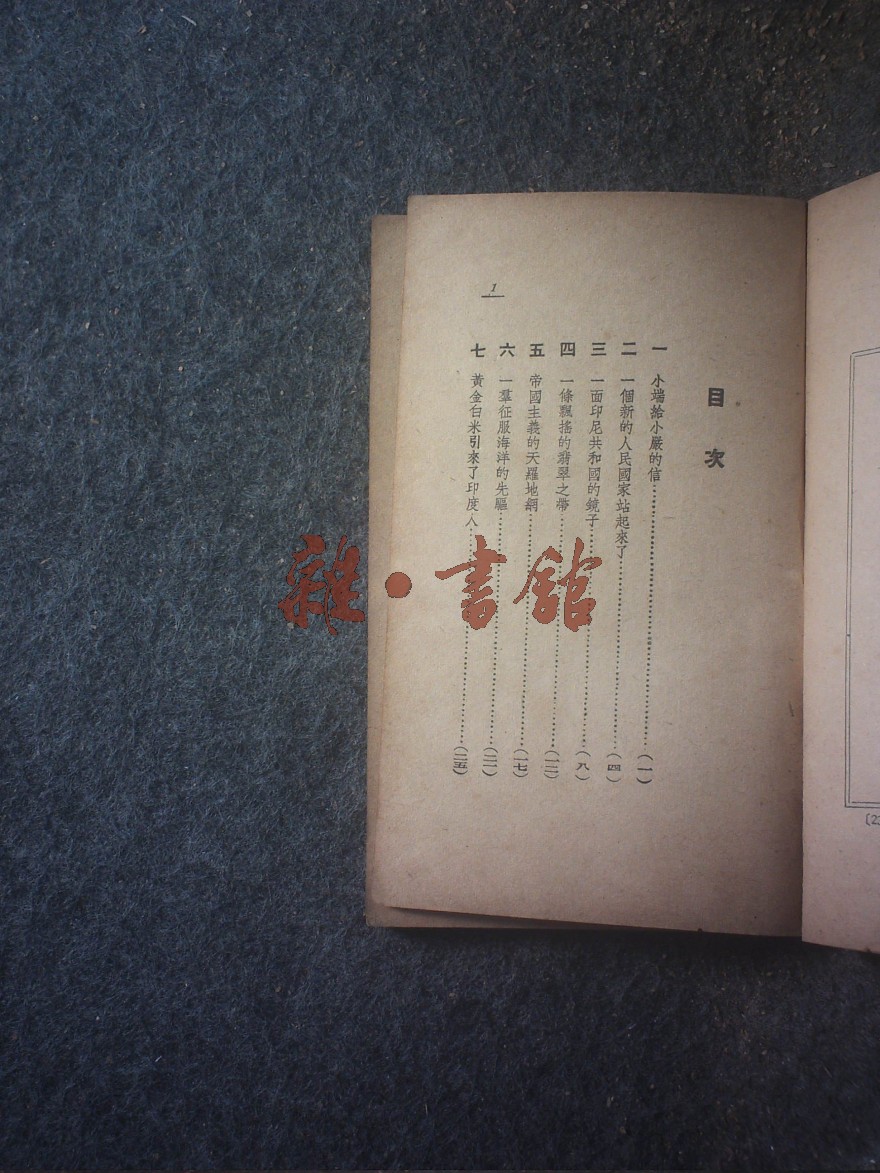 目次
一 小端給小嚴的信……(一)
二 一個新的人民國家站起來了……(四)
三 一面印尼共和國的鏡子……(八)
四 一條飄搖的翡翠之帶……(一二)
五 帝國主義的天羅地網……(一七)
六 一羣征服海洋的先驅……(二一)
七 黃金白米引來了印度人……(二五)
1
雜·書館